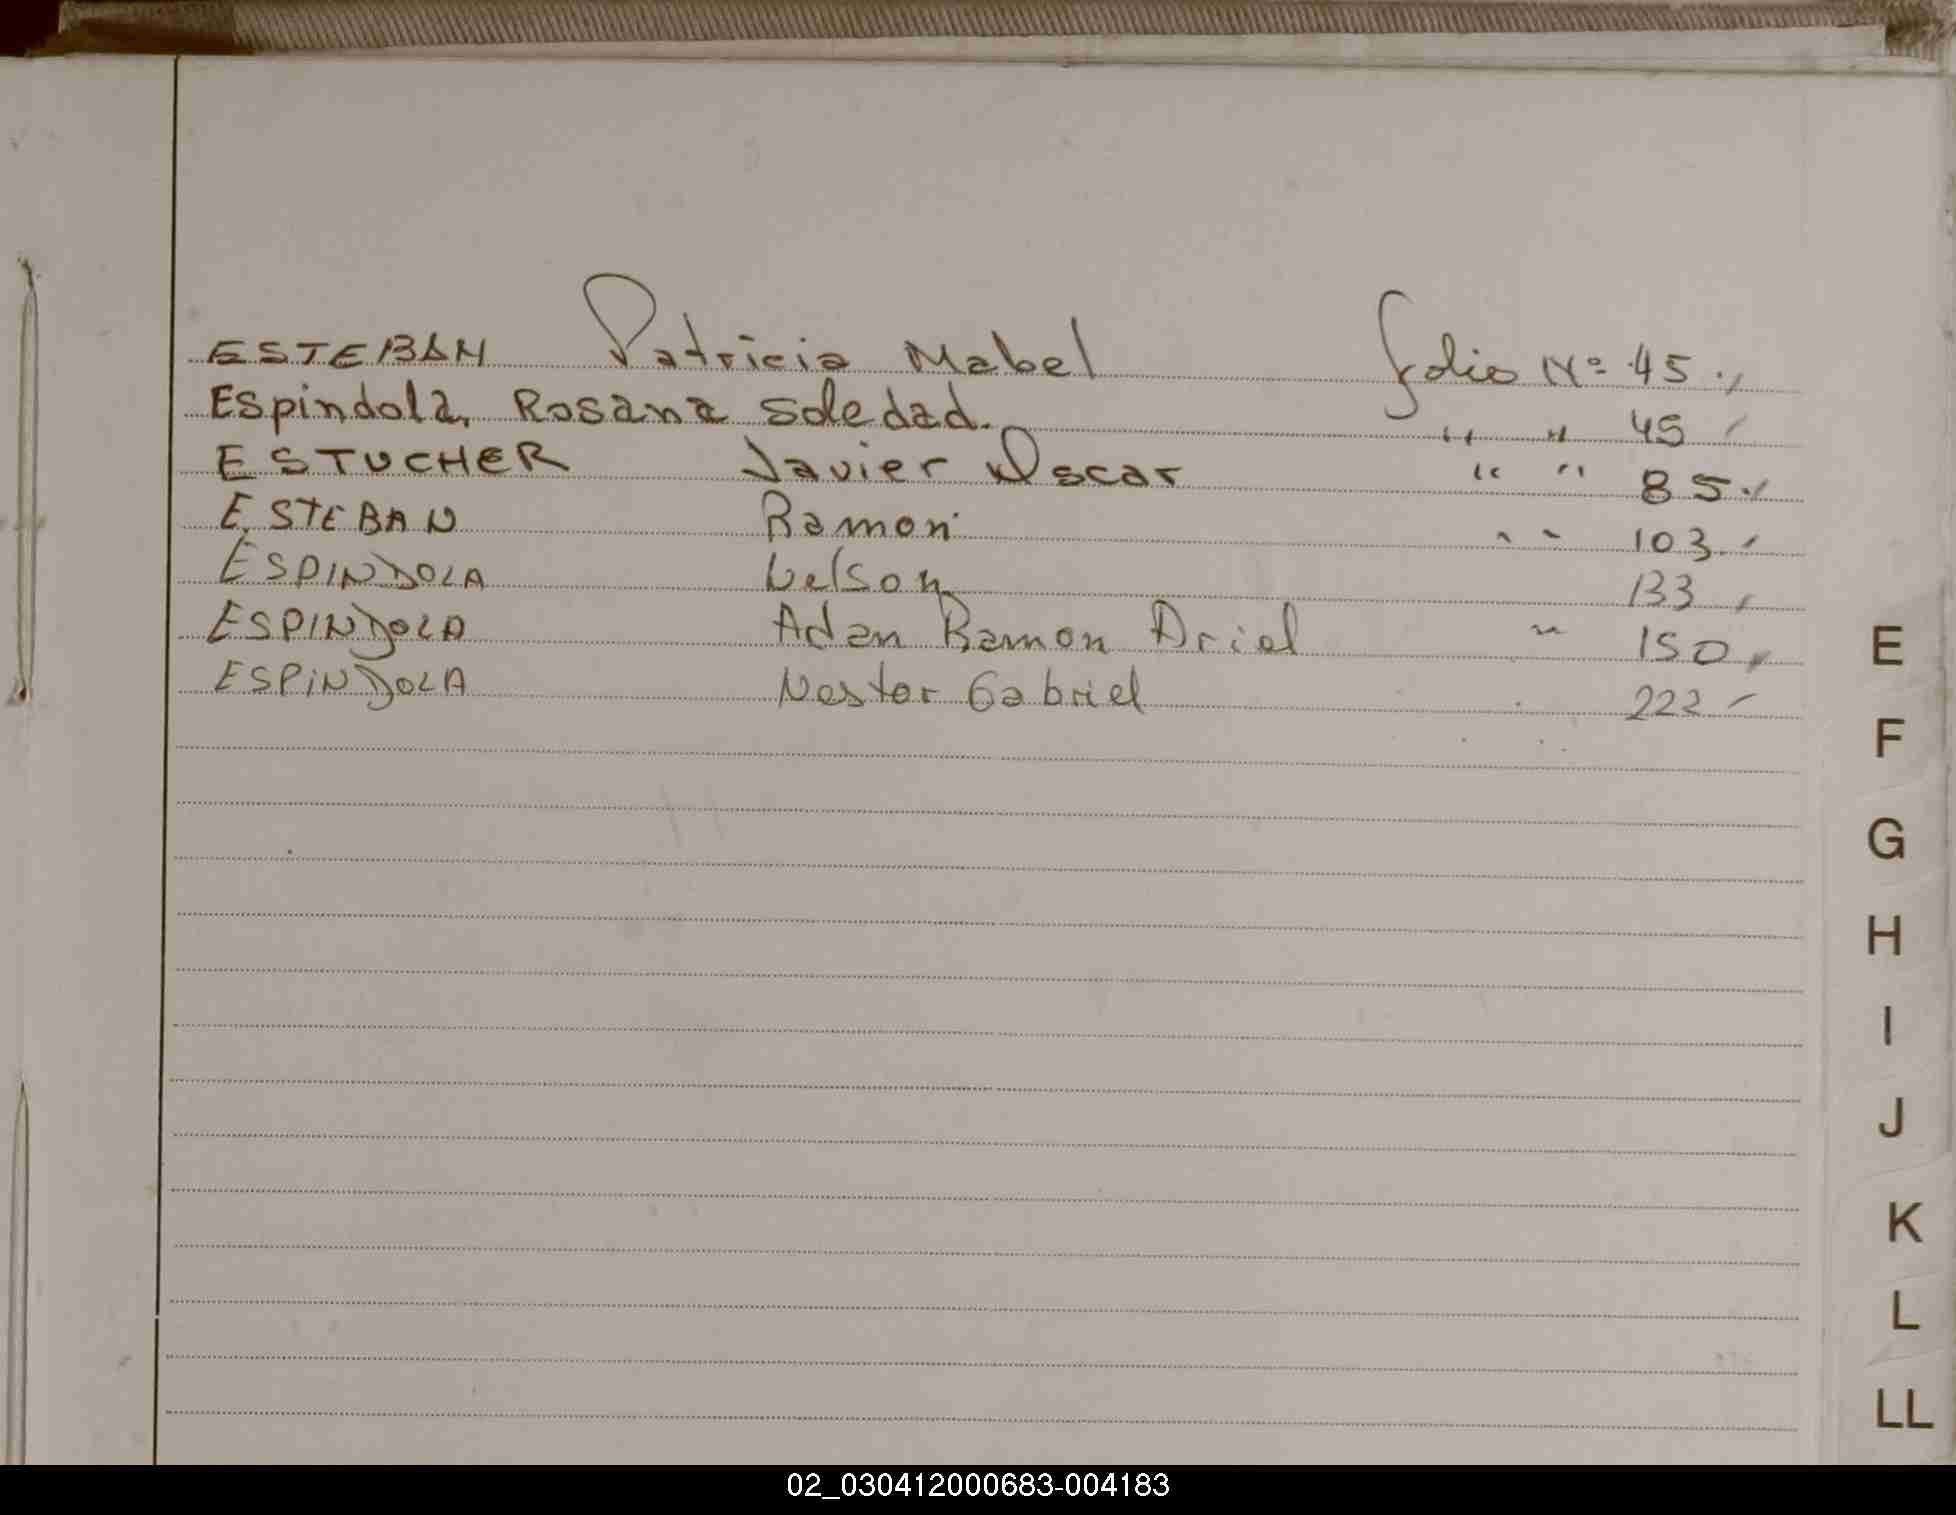 ESTEBAN Patricia Mabel folio Nº 45.
Espindola, Rosana Soledad. " " 45
ESTUCHER Javier Oscar " " 85.
ESTEBAN Ramon " " 103.
ESPINDOLA Nelson 133
ESPINDOLA Adan Ramon Ariel " 150
ESPINDOLA Nestor Gabriel 222
E
F
G
H
I
J
K
L
LL
02_030412000683-004183